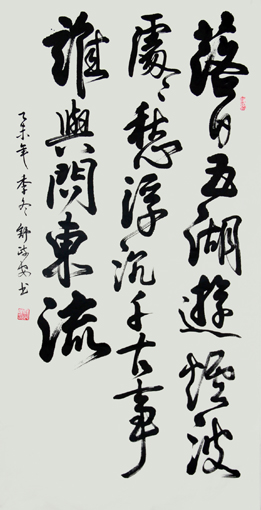 落日五湖遊煙波
處々愁浮沉千古事
誰與問東流
乙未年季冬舒安书